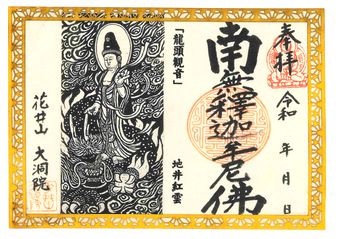 奉拝
令和　年　月　日
南無釋迦牟尼佛
「龍頭観音」
地井紅雲
花廿山　大洞院